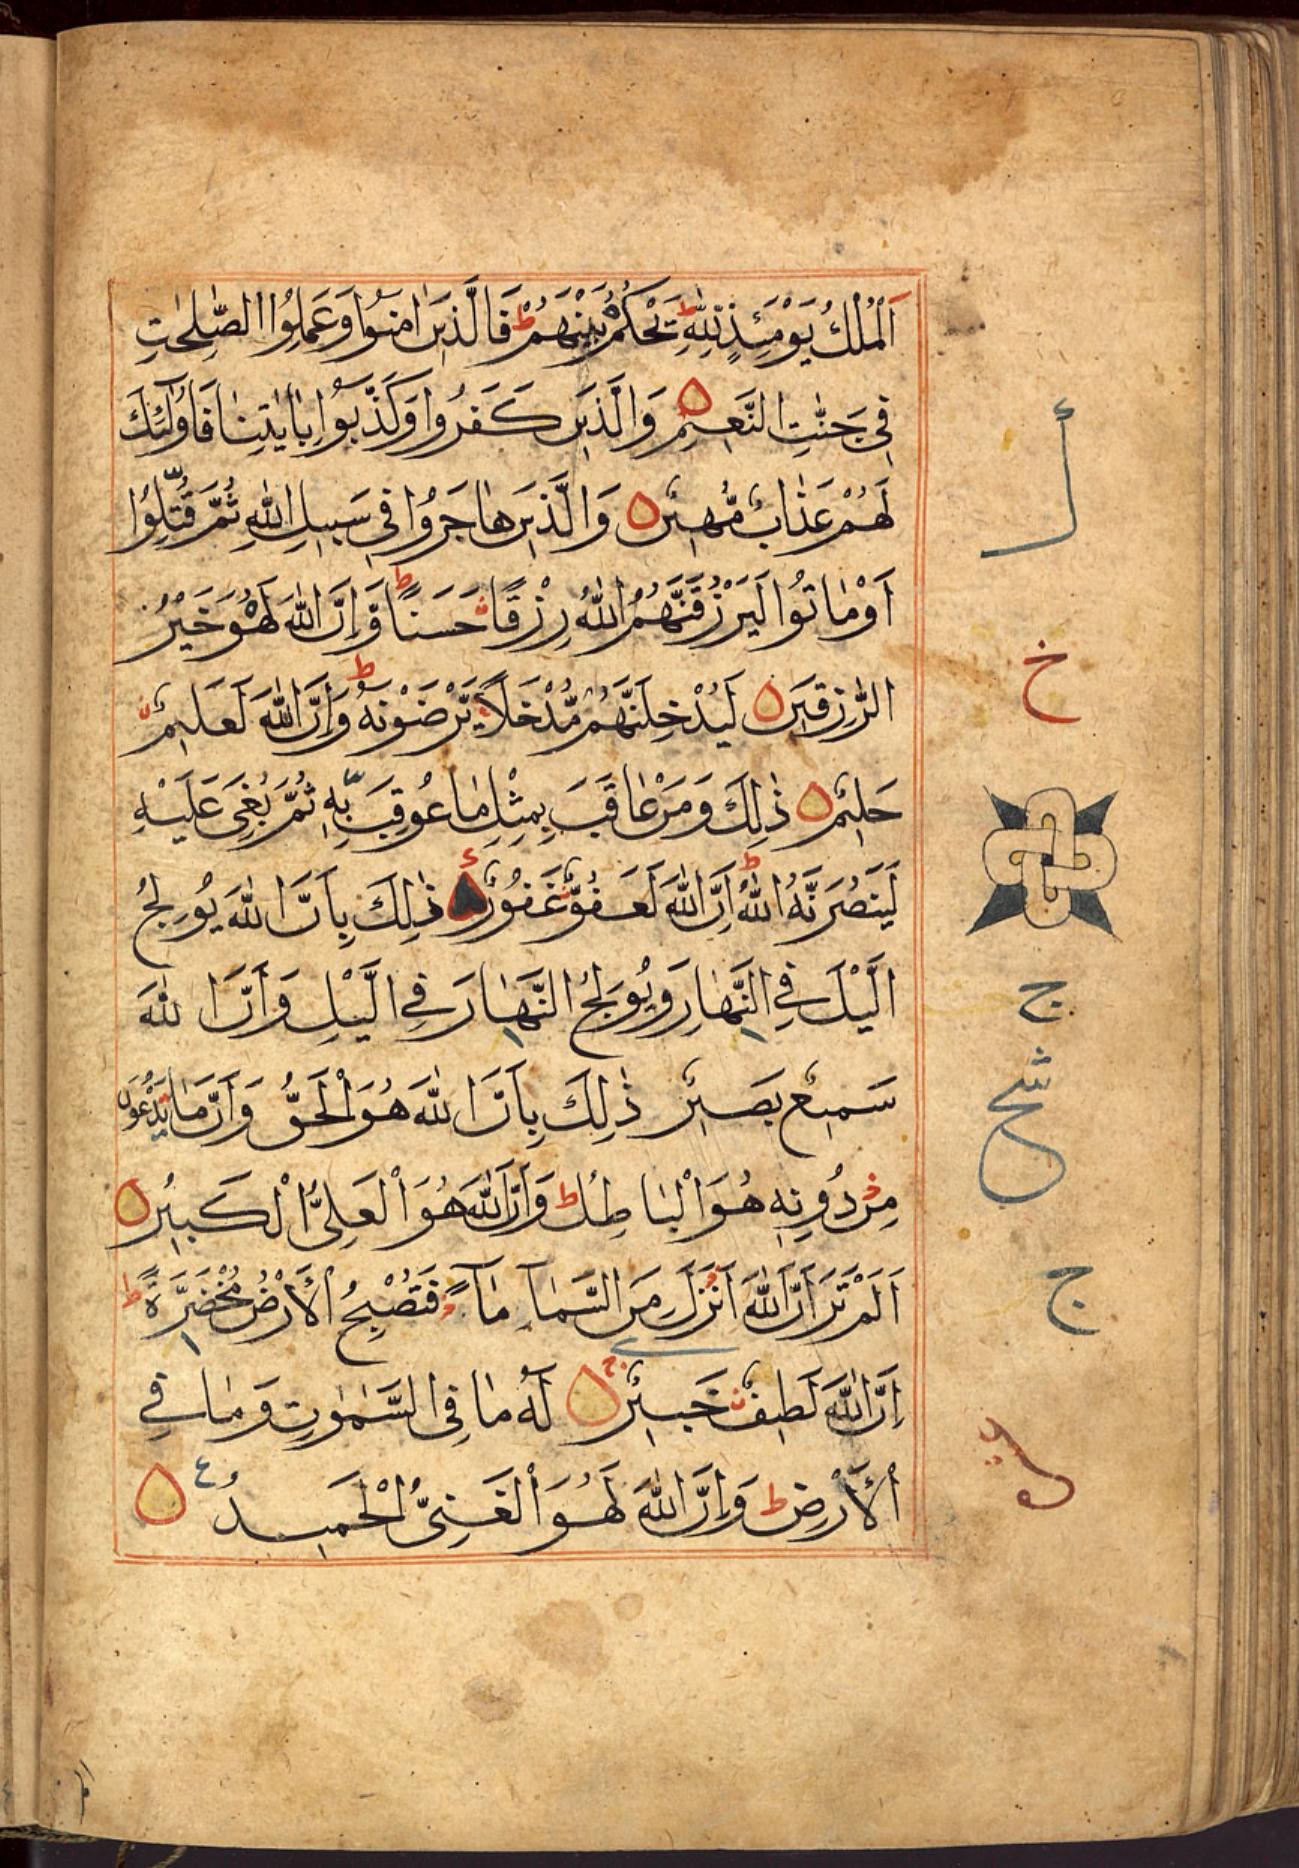 اَلْمُلْكُ يَوْمَئِذٍ لِلّٰهِ ط يَحْكُمُ بَيْنَهُمْ ط فَالَّذِيْنَ اٰمَنُوْا وَعَمِلُوا الصّٰلِحٰتِ
فِيْ جَنّٰتِ النَّعِيْمِ وَالَّذِيْنَ كَفَرُوْا وَكَذَّبُوْا بِاٰيٰتِنَا فَاُولٰٓئِكَ
لَهُمْ عَذَابٌ مُّهِيْنٌ وَالَّذِيْنَ هَاجَرُوْا فِيْ سَبِيْلِ اللّٰهِ ثُمَّ قُتِلُوْا
اَوْ مَاتُوْا لَيَرْزُقَنَّهُمُ اللّٰهُ رِزْقًا حَسَنًا ط وَّاِنَّ اللّٰهَ لَهُوَ خَيْرُ
الرّٰزِقِيْنَ لَيُدْخِلَنَّهُمْ مُّدْخَلًا يَّرْضَوْنَهُ ط وَاِنَّ اللّٰهَ لَعَلِيْمٌ
حَلِيْمٌ ذٰلِكَ وَمَنْ عَاقَبَ بِمِثْلِ مَا عُوْقِبَ بِهٖ ثُمَّ بُغِيَ عَلَيْهِ
لَيَنْصُرَنَّهُ اللّٰهُ ط اِنَّ اللّٰهَ لَعَفُوٌّ غَفُوْرٌ ذٰلِكَ بِاَنَّ اللّٰهَ يُوْلِجُ
الَّيْلَ فِي النَّهَارِ وَيُوْلِجُ النَّهَارَ فِي الَّيْلِ وَاَنَّ اللّٰهَ
سَمِيْعٌ بَصِيْرٌ ذٰلِكَ بِاَنَّ اللّٰهَ هُوَ الْحَقُّ وَاَنَّ مَا يَدْعُوْنَ
مِنْ دُوْنِهٖ هُوَ الْبَاطِلُ ط وَاَنَّ اللّٰهَ هُوَ الْعَلِيُّ الْكَبِيْرُ
اَلَمْ تَرَ اَنَّ اللّٰهَ اَنْزَلَ مِنَ السَّمَآءِ مَآءً فَتُصْبِحُ الْاَرْضُ مُخْضَرَّةً ط
اِنَّ اللّٰهَ لَطِيْفٌ خَبِيْرٌ ج لَهُ مَا فِي السَّمٰوٰتِ وَمَا فِي
الْاَرْضِ ط وَاِنَّ اللّٰهَ لَهُوَ الْغَنِيُّ الْحَمِيْدُ ع
خ
ج
ج